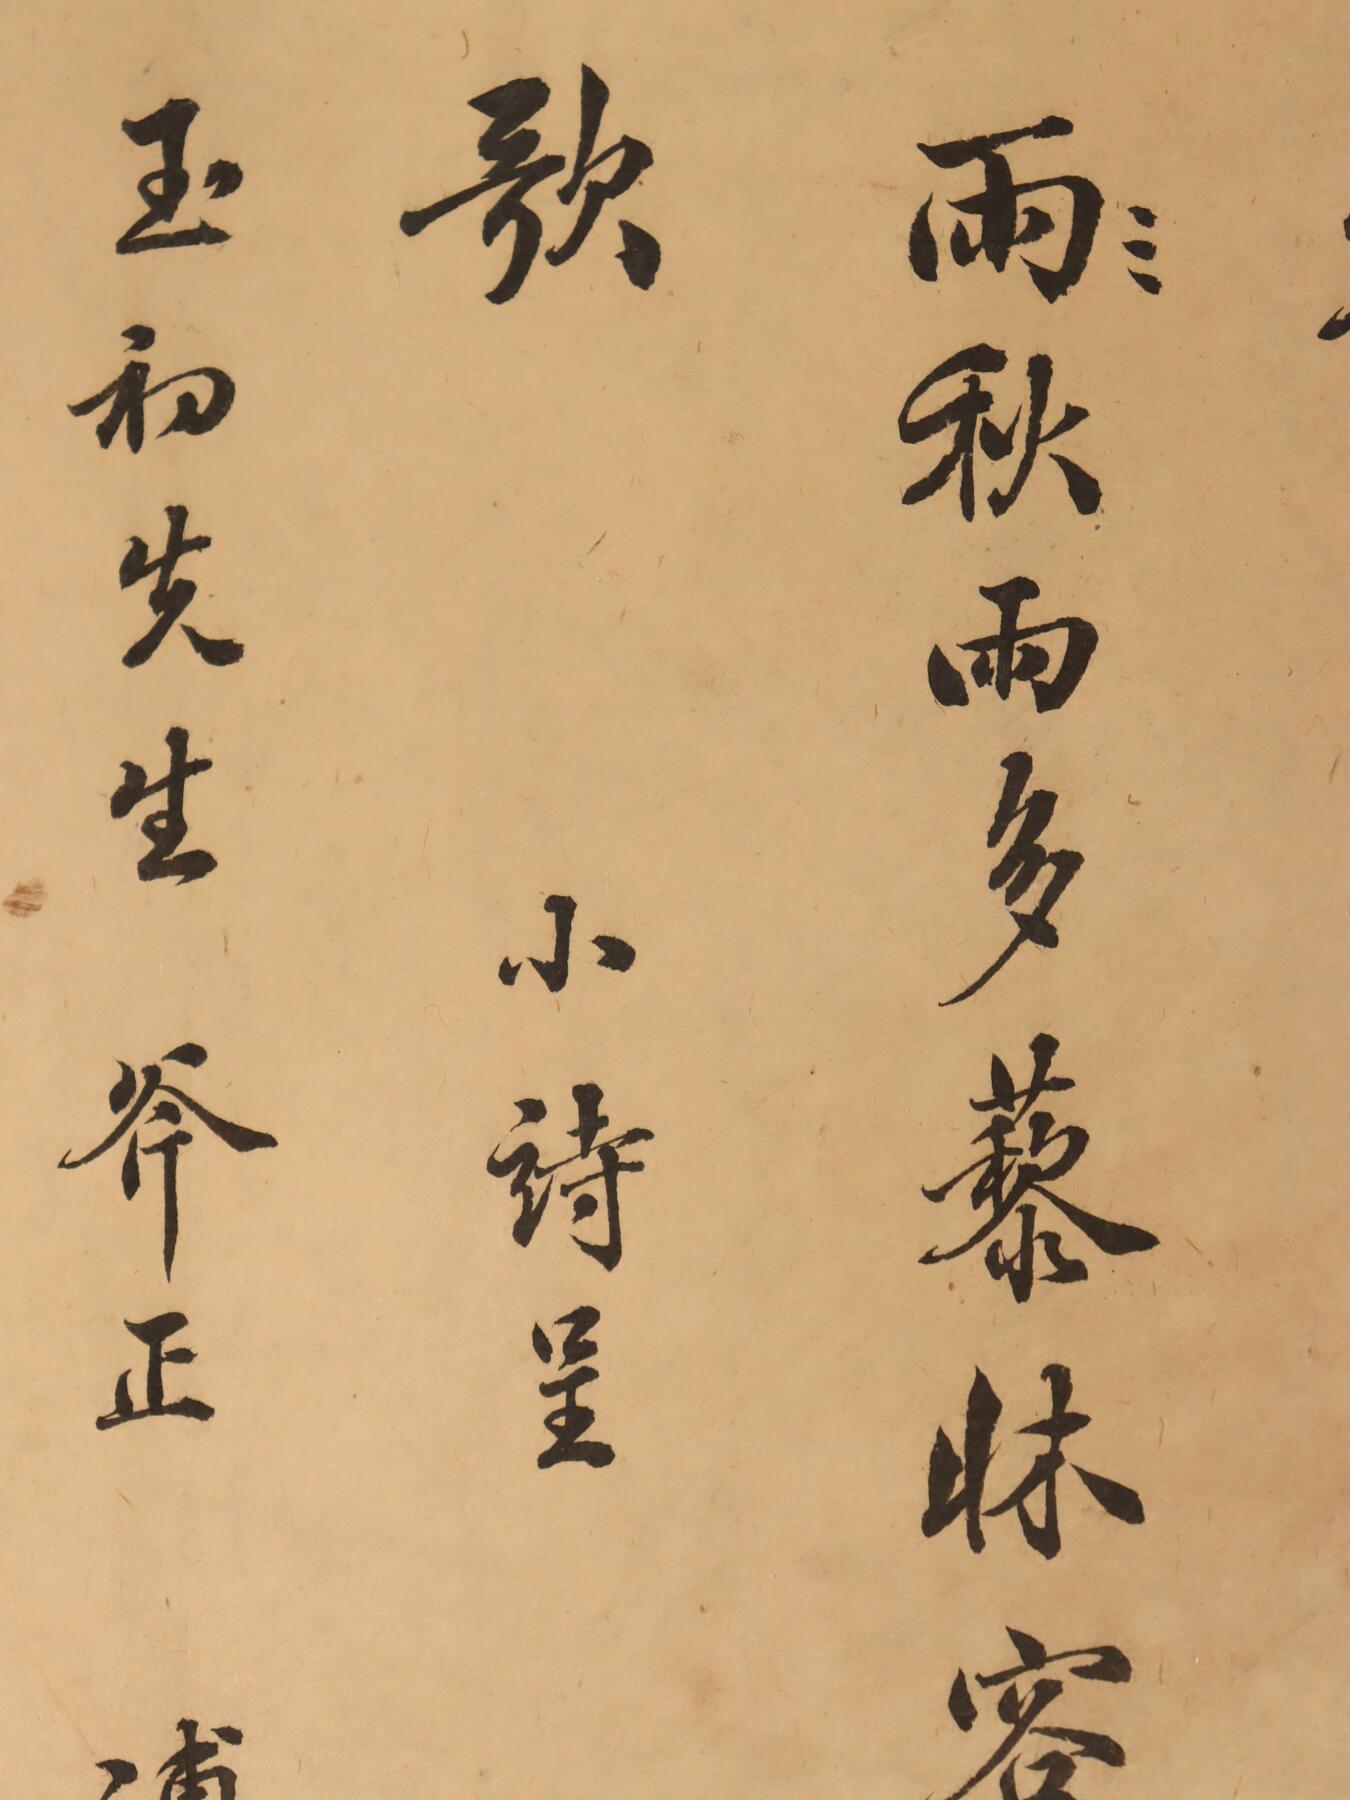 雨秋雨多藜牀容
歌 小詩呈
玉初先生 斧正